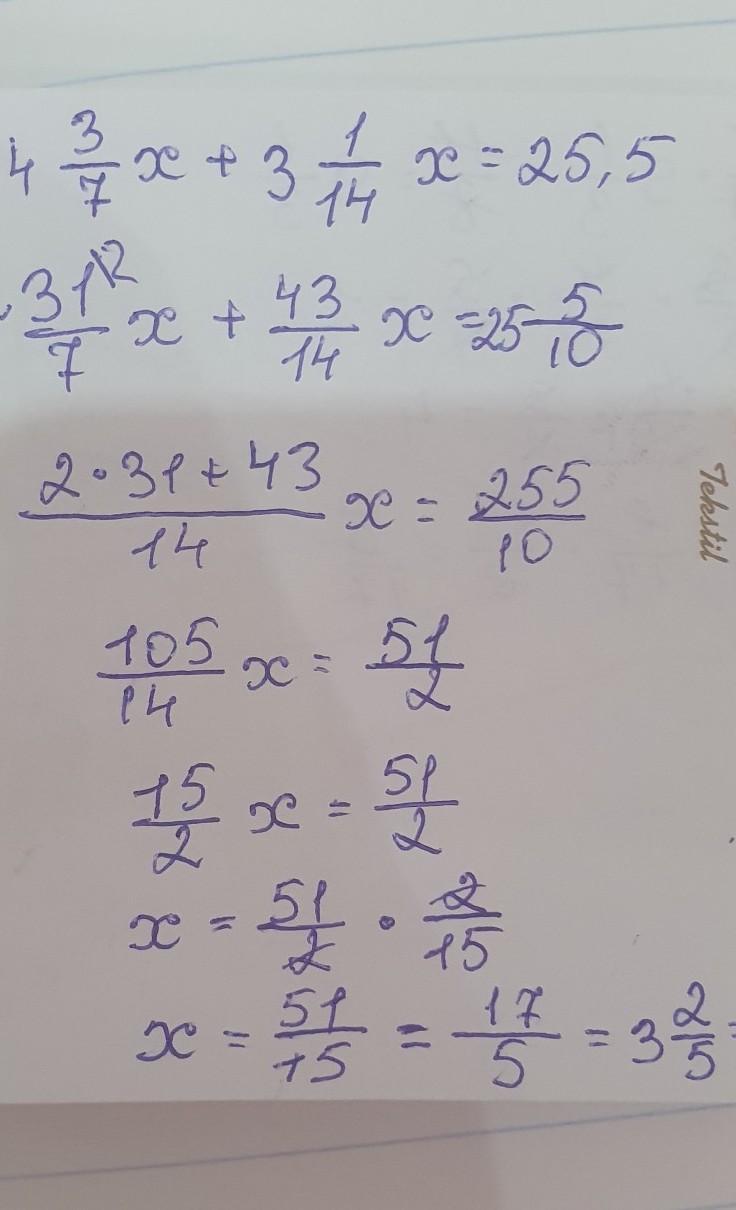 4 3/7 x + 3 1/14 x = 25,5
31\2/7 x + 43/14 x = 25 5/10
2·31+43/14 x = 255/10
Tekstil
105/14 x = 51/2
15/2 x = 51/2
x = 51/2 · 2/15
x = 51/15 = 17/5 = 3 2/5 =